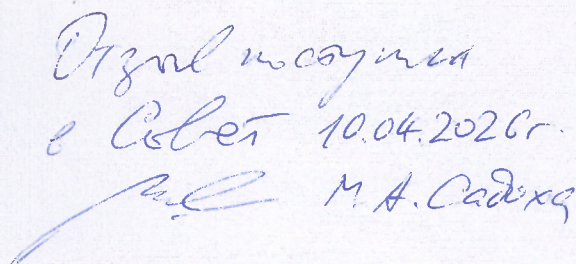 Отзыв поступил
в Совет 10.04.2026 г.
М.А. Садоха